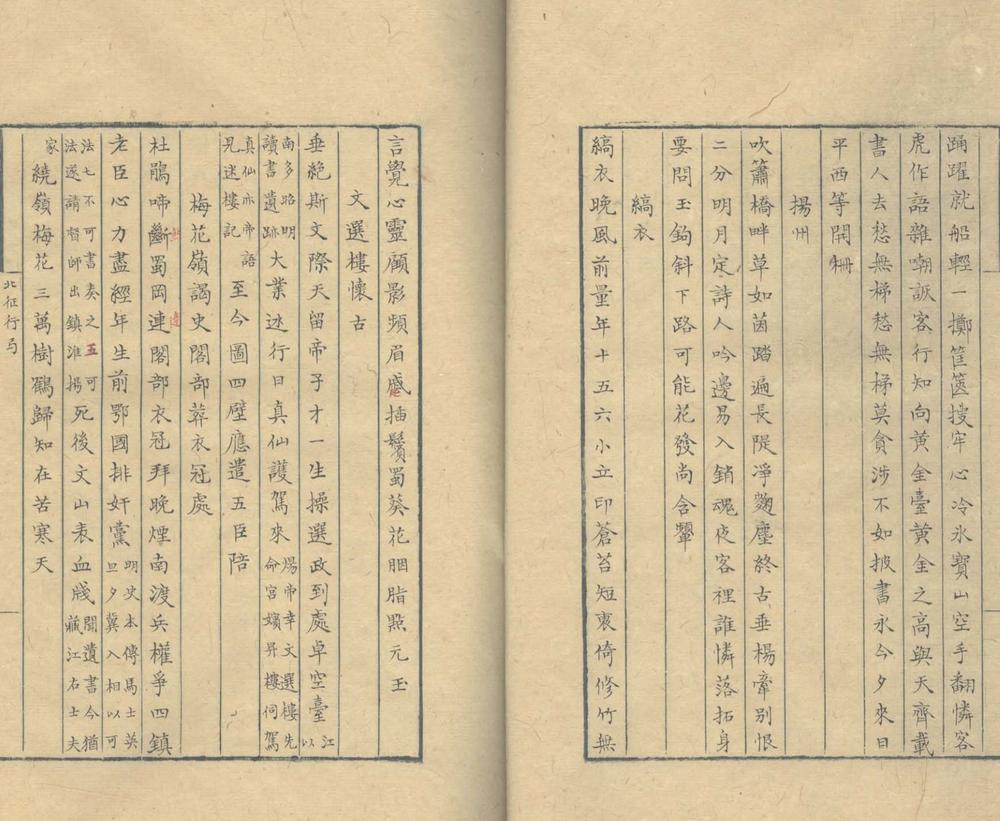 踊躍就船輕一擲筐篋搜牢心冷氷寶山空手翻憐客
虎作語雜嘲詼客行知向黃金臺黃金之高與天齊載
書人去愁無梯愁無梯莫貪涉不如披書永今夕來日
平西等開柵
揚州
吹簫橋畔草如茵踏遍長隄凈麴塵終古垂楊牽別恨
二分明月定詩人吟邊易入銷魂夜客裡誰憐落拓身
要問玉鉤斜下路可能花發尚含顰
縞衣
縞衣晚風前量年十五六小立印蒼苔短衷倚修竹無
言覺心靈顧影頻眉感插鬢蜀葵花胭脂點元玉
文選樓懷古
垂絕斯文際天留帝子才一生操選政到處卓空臺江
以
南多昭明
讀書遺跡大業迷行日真仙護駕來煬帝幸文選樓先
命宮嬪昇樓伺駕
真仙亦帝語
見迷樓記至今圖四壁應遣五臣陪
梅花嶺謁史閣部葬衣冠處
杜鵑啼斷蜀岡連閣部衣冠拜晚煙南渡兵權爭四鎮
老臣心力盡經年生前鄂國排奸黨明史本傳馬士英
旦夕冀入相以可
法七不可書奏之五可
法遂請督師出鎮淮揚死後文山表血牋聞遺書今猶
藏江右士夫
家繞嶺梅花三萬樹鶴歸知在苦寒天
北征行